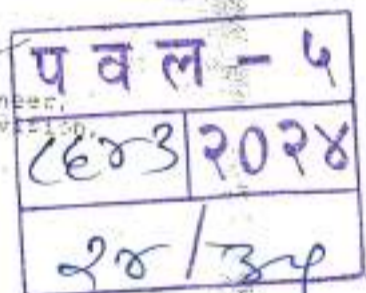 प व ल - ५
neer,
८६४३ २०२४
२४/३५